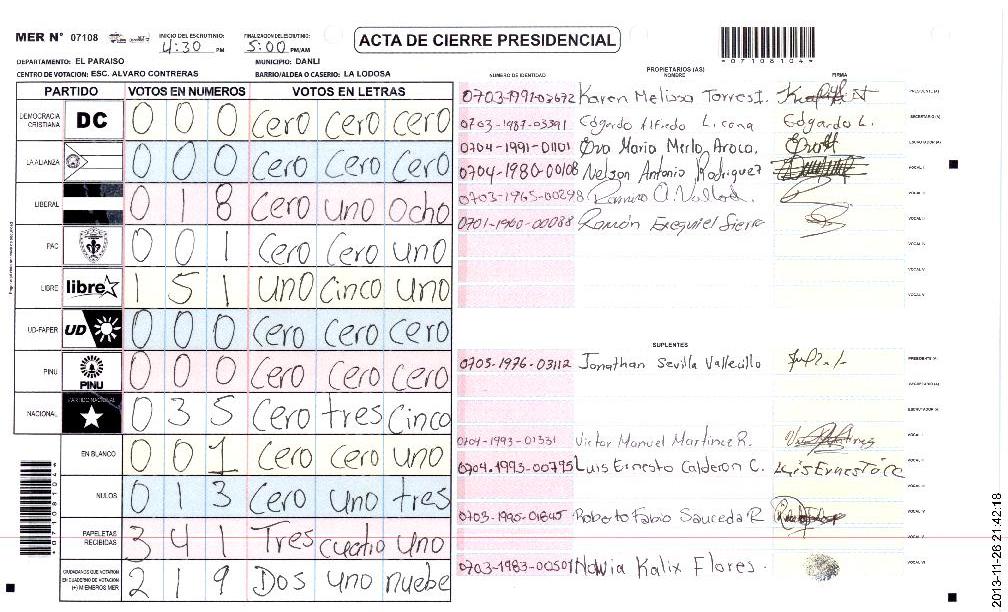 MER N° 07108
INICIO DEL ESCRUTINIO: 4:30 PM
FINALIZACION DEL ESCRUTINIO: 5:00 PM/AM
ACTA DE CIERRE PRESIDENCIAL
*07108104*
DEPARTAMENTO: EL PARAISO
MUNICIPIO: DANLI
CENTRO DE VOTACION: ESC. ALVARO CONTRERAS
BARRIO/ALDEA O CASERIO: LA LODOSA
PARTIDO VOTOS EN NUMEROS VOTOS EN LETRAS
DEMOCRACIA CRISTIANA DC 0 0 0 Cero Cero Cero
LA ALIANZA 0 0 0 Cero Cero Cero
LIBERAL 0 1 8 Cero Uno Ocho
PAC 0 0 1 Cero Cero uno
LIBRE libre 1 5 1 Uno Cinco uno
UD-FAPER UD 0 0 0 Cero Cero Cero
PINU PINU 0 0 0 Cero Cero Cero
NACIONAL PARTIDO NACIONAL 0 3 5 Cero tres Cinco
EN BLANCO 0 0 1 Cero Cero uno
NULOS 0 1 3 Cero Uno tres
PAPELETAS RECIBIDAS 3 4 1 Tres cuatro uno
CIUDADANOS QUE VOTARON EN CUADERNO DE VOTACION (+) MIEMBROS MER 2 1 9 Dos uno nuebe
*07108104*
NUMERO DE IDENTIDAD
PROPIETARIOS (AS)
NOMBRE
FIRMA
0703-1991-03672 Karen Melissa Torres I. PRESIDENTE (A)
0703-1987-03391 Edgardo Alfredo Licona Edgardo L. SECRETARIO (A)
0704-1991-01101 Eva Maria Merlo Aroca. ESCRUTADOR (A)
0704-1980-00108 Nelson Antonio Rodriguez VOCAL I
0703-1965-00298 VOCAL II
0701-1960-00088 Ramón Exequiel Sierra VOCAL III
VOCAL IV
VOCAL V
VOCAL VI
SUPLENTES
0705-1976-03112 Jonathan Sevilla Vallecillo PRESIDENTE (A)
SECRETARIO (A)
ESCRUTADOR (A)
0704-1993-01331 Victor Manuel Martinez R. VOCAL I
0704.1993-00795 Luis Ernesto Calderon C. VOCAL II
0703-1995-01845 Roberto Fabio Sauceda R VOCAL IV
VOCAL V
0703-1983-00501 Nawia Kalix Flores. VOCAL VI
2013-11-26 21:42:18